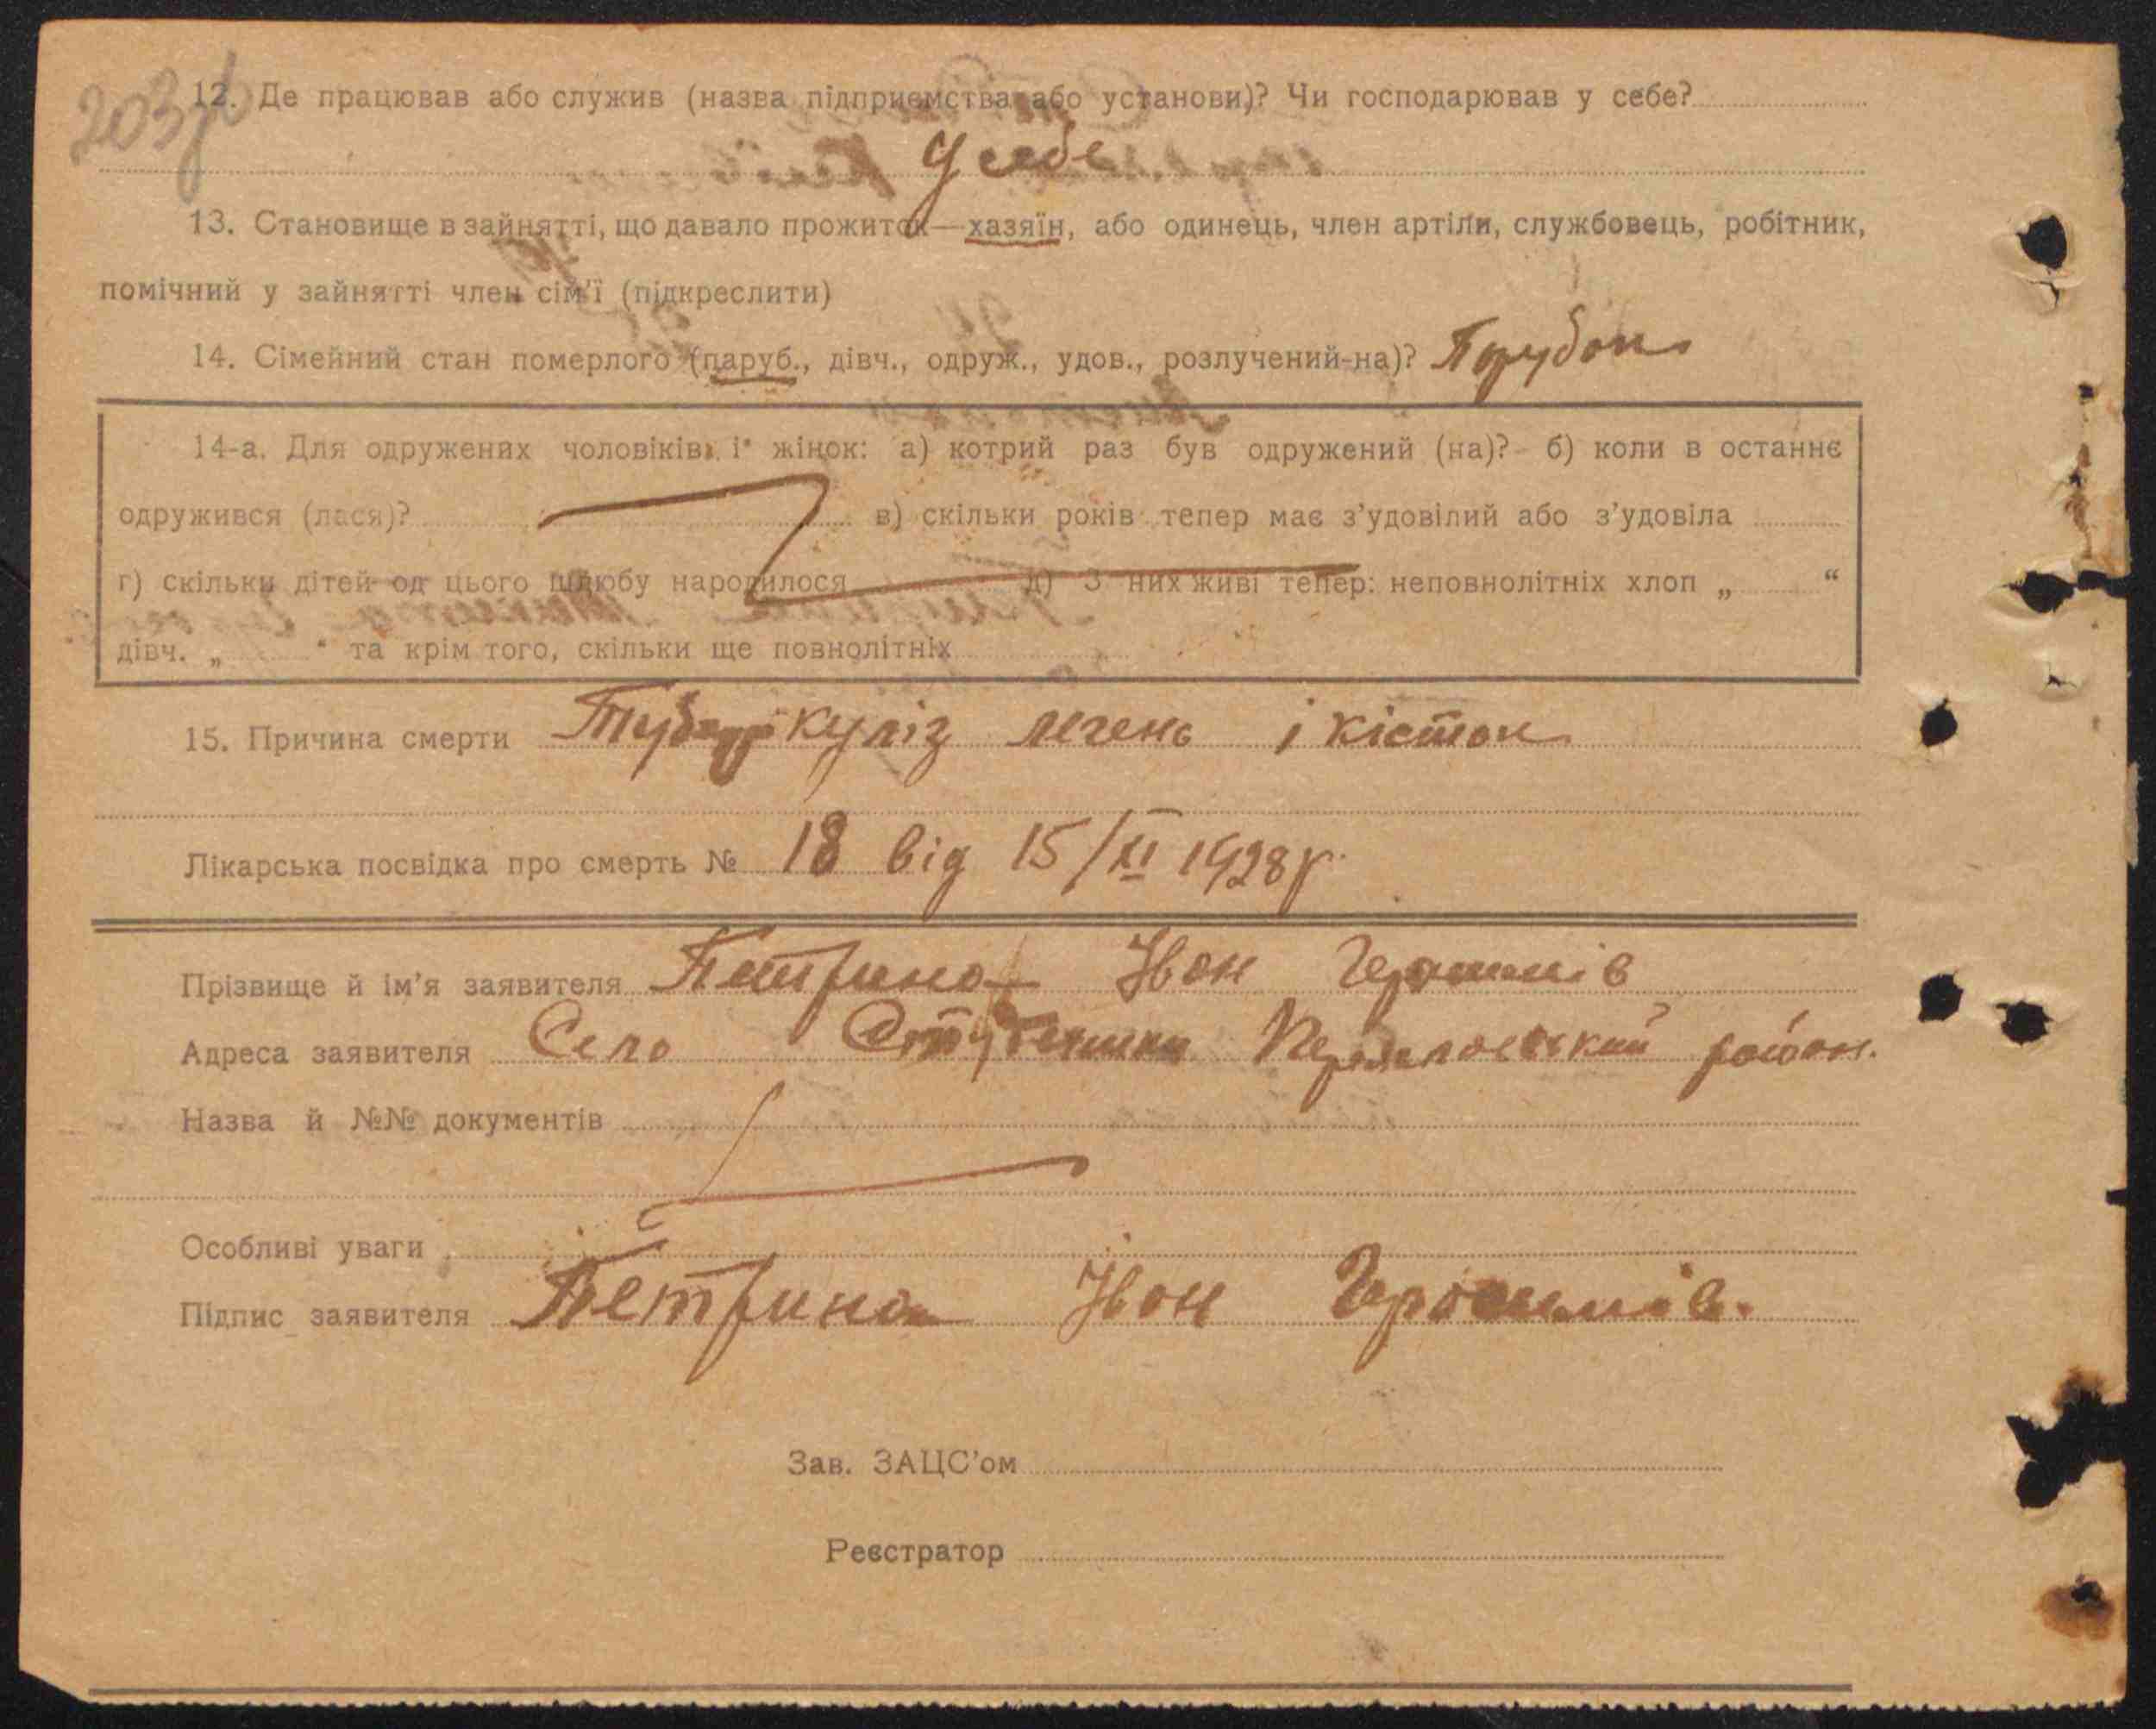 203
12. Де працював або служив (назва підприємства або установи)? Чи господарював у себе?
У себе
13. Становище в зайнятті, що давало прожиток—хазяїн, або одинець, член артіли, службовець, робітник,
помічний у зайнятті член сім'ї (підкреслити)
14. Сімейний стан померлого (паруб., дівч., одруж., удов., розлучений-на)? Парубок
14-а. Для одружених чоловіків і жінок: а) котрий раз був одружений (на)? б) коли в останнє
одружився (лася)? в) скільки років тепер має з'удовілий або з'удовіла
г) скільки дітей од цього шлюбу народилося д) З них живі тепер: неповнолітніх хлоп „ “
дівч. „ “ та крім того, скільки ще повнолітніх
15. Причина смерти Туберкуліз легень і кісток
Лікарська посвідка про смерть № 18 від 15/XI 1928 р.
Прізвище й ім'я заявителя Петрина Іван
Адреса заявителя Село район.
Назва й №№ документів
Особливі уваги
Підпис заявителя Петрина Іван
Зав. ЗАЦС'ом
Реєстратор